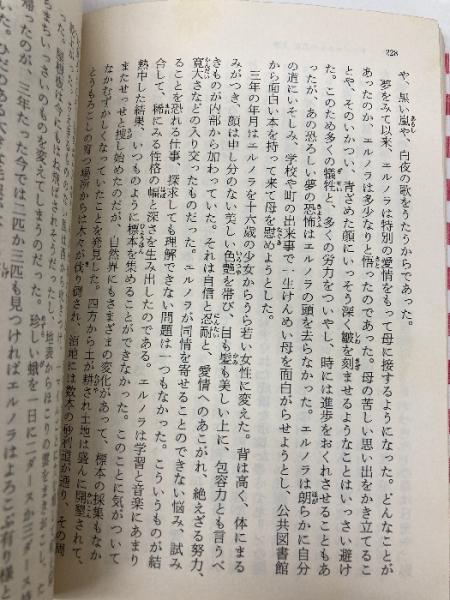 228
や、黒い嵐や、白夜の歌をうたうからであった。
夢をみて以来、エルノラは特別の愛情をもって母に接するようになった。どんなことが
あったのか、エルノラは多少なりと悟ったのであった。母の苦しい思い出をかき立てるこ
とや、そのいかつい、青ざめた顔にいっそう深く皺を刻ませるようなことはいっさい避け
た。このため多くの犠牲と、多くの労力をついやし、時には進歩をおくれさせることもあ
ったが、あの恐ろしい夢の恐怖はエルノラの頭を去らなかった。エルノラは朗らかに自分
の道にいそしみ、学校や町の出来事で一生けんめい母を面白がらせようとし、公共図書館
から面白い本を持って来て母を慰めようとした。
三年の年月はエルノラを十六歳の少女からうら若い女性に変えた。背は高く、体にまる
みがつき、顔は申し分のない美しい色艶を帯び、目も髪も美しい上に、包容力とも言うべ
きものが内部から加わっていた。それは自信と忍耐と、愛情へのあこがれ、絶えざる努力、
寛大さなどの入り交ったものだった。エルノラが同情を寄せることのできない悩み、試み
ることを恐れる仕事、探求しても理解できない問題は一つもなかった。こういうものが結
合して、稀にみる性格の幅と深さを生み出したのである。エルノラは学習と音楽にあまり
熱中した結果、いぜんのように標本を集めることができなかった。このことに気がついて
またせっせと捜し始めたのだが、自然界にもさまざまの変化があって、標本の採集もなか
なかむずかしくなっていたことを発見した。四方から土が耕され土地は盛んに開墾されて、
とうもろこしの育つ場所からは木々が伐り倒され、沼地には数本の砂利道が通り、その間
ちまちいっさいのものを変えてしまうのだった。珍しい蛾を一日に二ダース
帰ったのが、三年たった今では二匹か三匹も見つければエルノラはよろこぶ有り様と